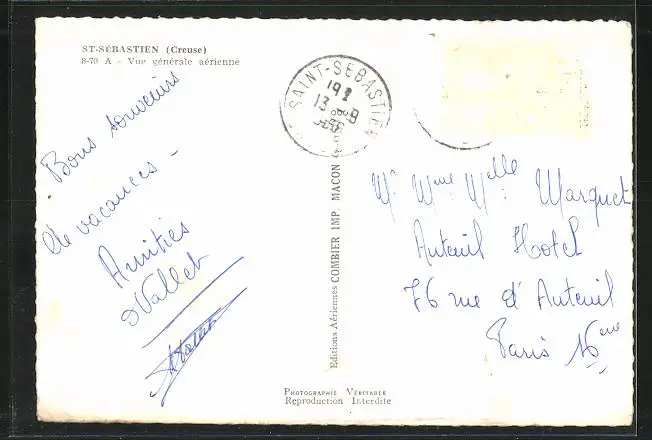 ST-SÉBASTIEN (Creuse)
8-70 A - Vue générale aérienne
Bons souvenirs
de vacances -
Amitiés
Vallet
SAINT-SÉBASTIEN
13 - 9
Editions Aériennes COMBIER IMP MACON
Mr Mme Melle Marquet
Auteuil Hotel
76 rue d'Auteuil
Paris 16eme
PHOTOGRAPHIE VÉRITABLE
Reproduction Interdite